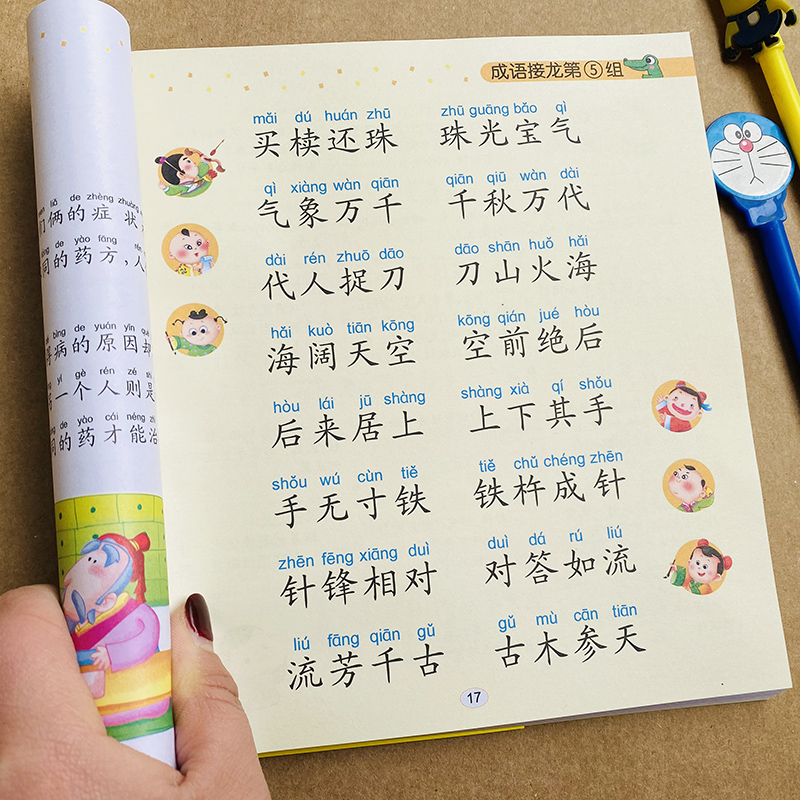 们俩的症状
liǎ de zhèng zhuàng
同的药方，人
de yào fāng rén
bìng de yuán yīn què
病的原因却
yí gè rén zé shì
一个人则是
de yào cái néng zhì
同的药才能治
成语接龙第⑤组
mǎi dú huán zhū zhū guāng bǎo qì
买椟还珠 珠光宝气
qì xiàng wàn qiān qiān qiū wàn dài
气象万千 千秋万代
dài rén zhuō dāo dāo shān huǒ hǎi
代人捉刀 刀山火海
hǎi kuò tiān kōng kōng qián jué hòu
海阔天空 空前绝后
hòu lái jū shàng shàng xià qí shǒu
后来居上 上下其手
shǒu wú cùn tiě tiě chǔ chéng zhēn
手无寸铁 铁杵成针
zhēn fēng xiāng duì duì dá rú liú
针锋相对 对答如流
liú fāng qiān gǔ gǔ mù cān tiān
流芳千古 古木参天
17